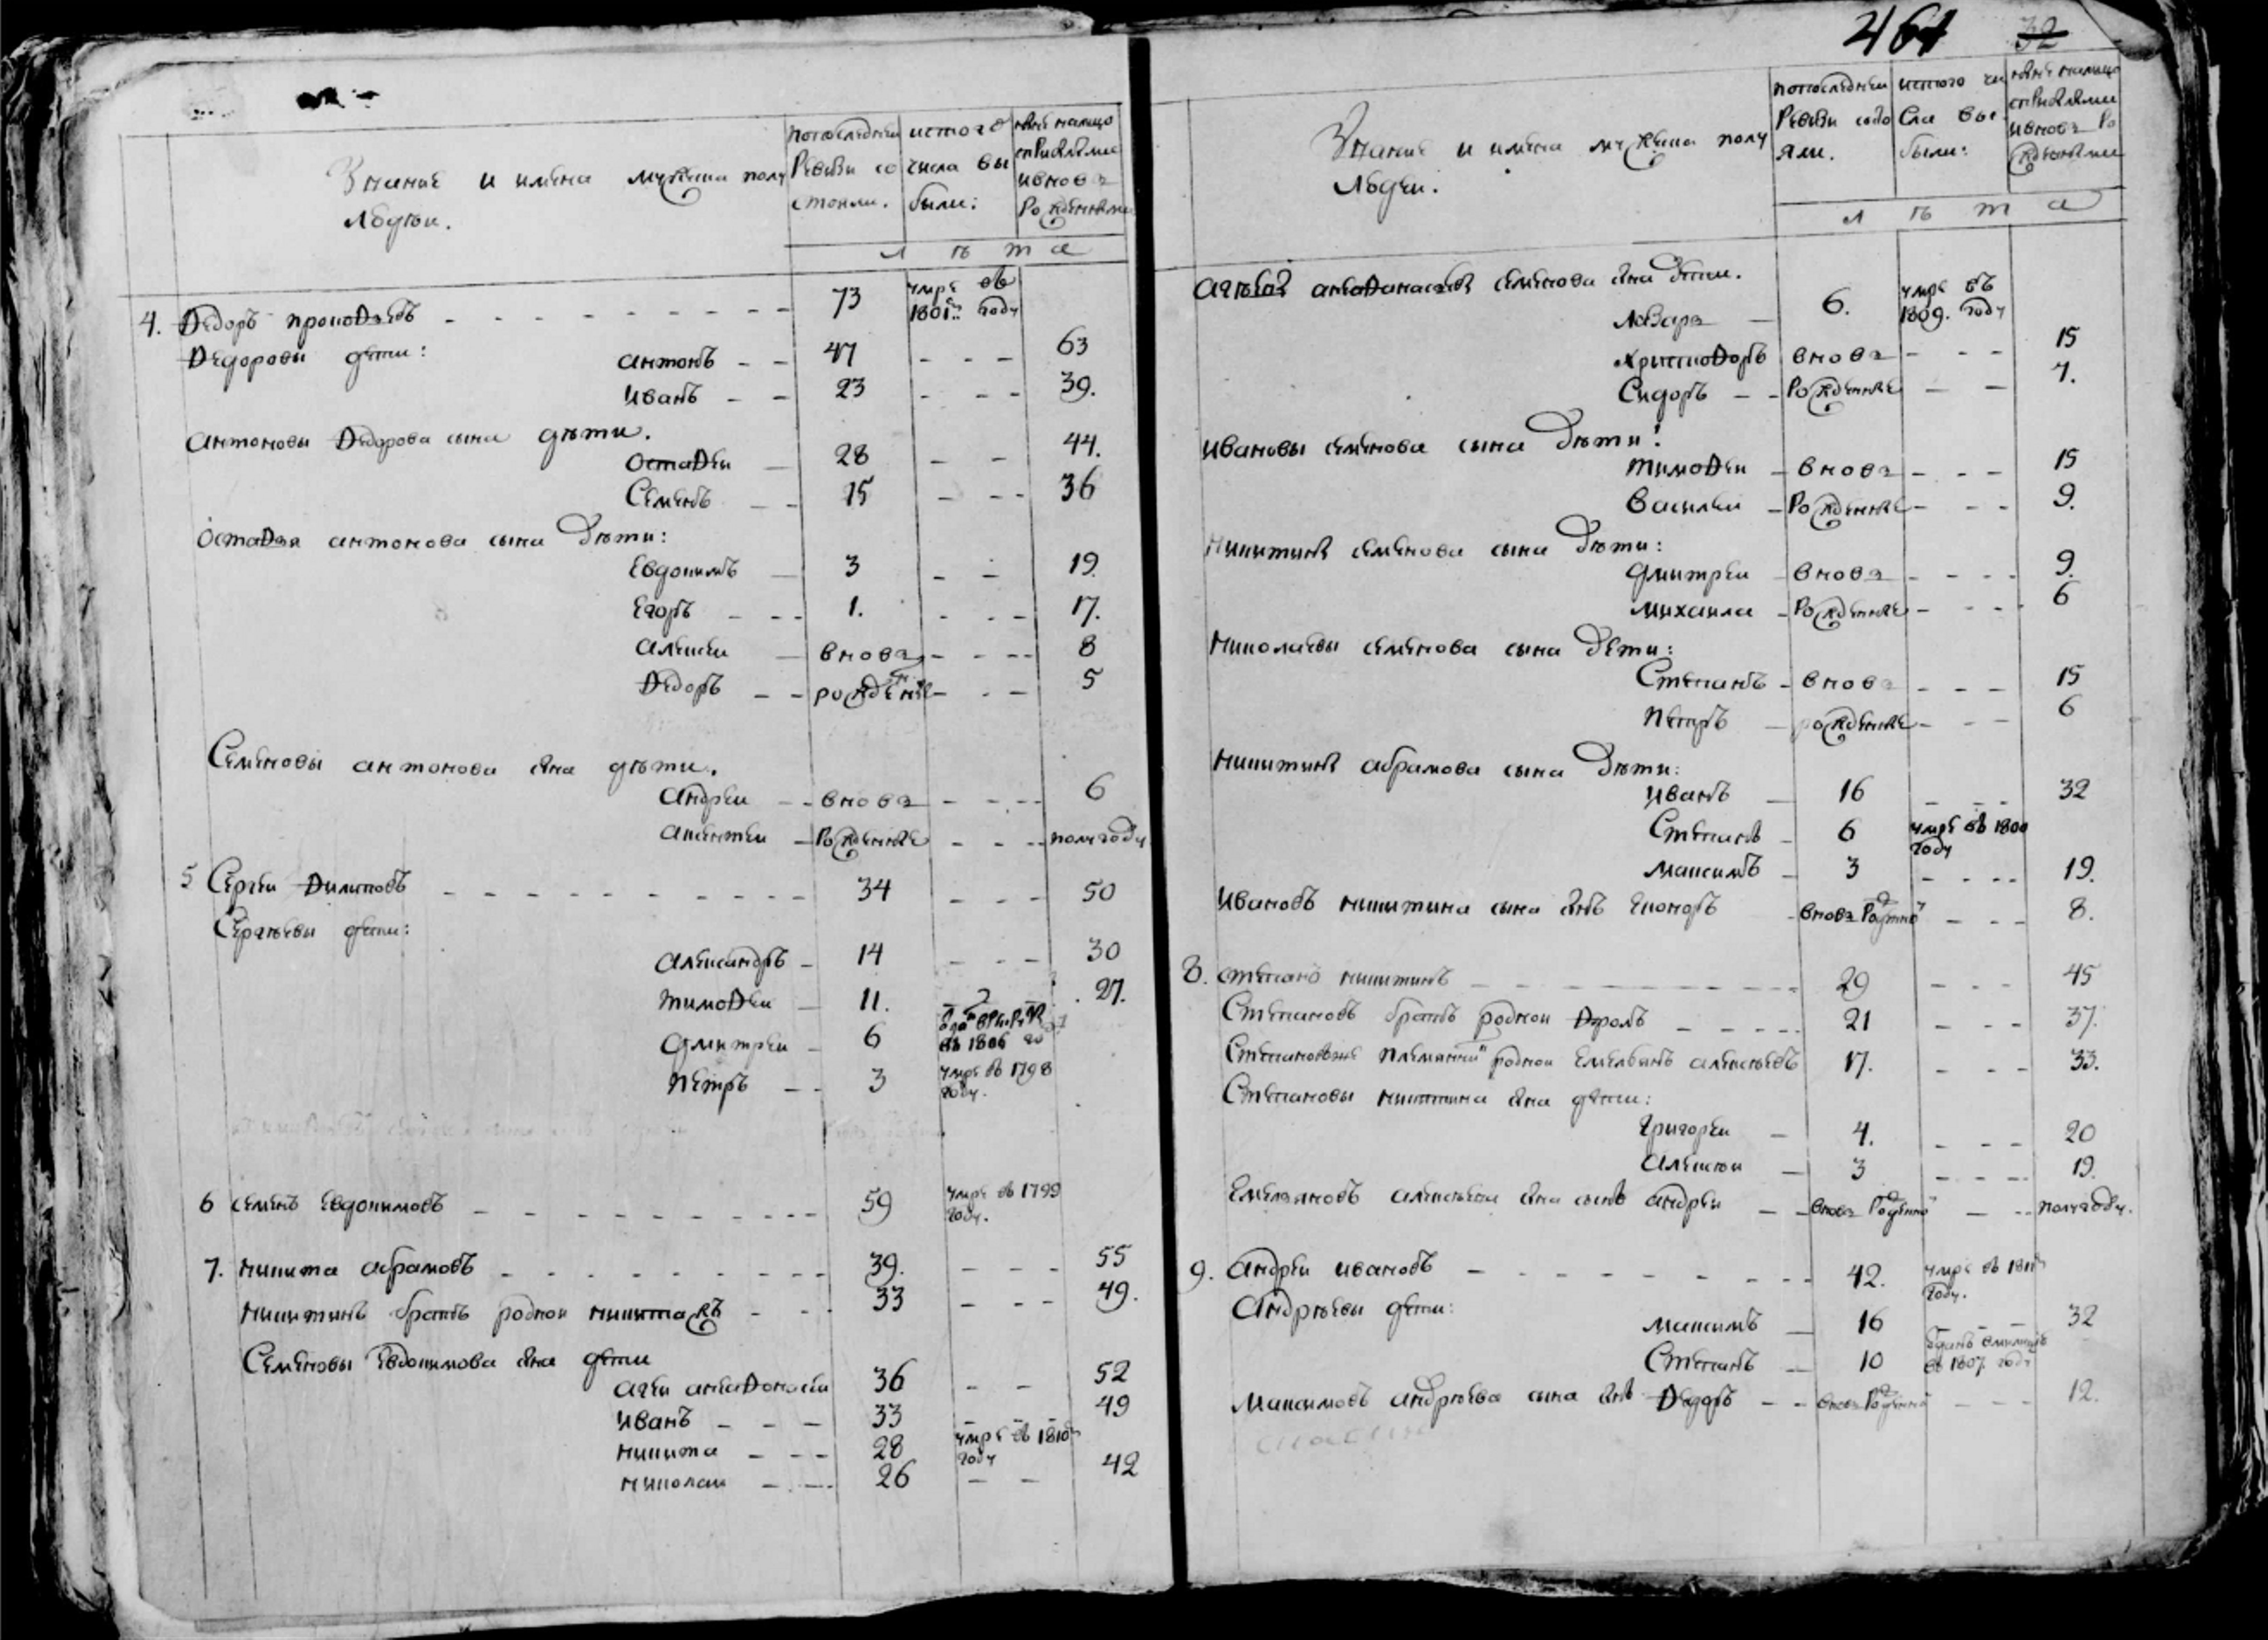 461 32
Звание и имена мужеска полу
людеи.
попоследнеи
Ревизи со
стояли.
истого
числа вы
были:
ныне налицо
сприбылыми
ивновь
Рожденными
л ѣ т а
4. Ѳедоръ прокоѳьевъ 73 умре въ
1801м году
Ѳедоровы дети:
антонъ 47 63
Иванъ 23 39.
антоновы Ѳедорова сына дѣти.
остаѳеи 28 44.
Семенъ 15 36
остаѳья антонова сына дѣти:
Евдокимъ 3 19.
Егоръ 1. 17.
алексеи вновь 8
Ѳедоръ рожденные 5
Семеновы антонова сна дѣти.
андреи вновь 6
авксентеи Рожденные полугоду
5 Сергеи Ѳилиповъ 34 50
Сергѣевы дети:
александръ 14 30
тимоѳеи 11. 27.
дмитреи 6 въ 1806 го
петръ 3 умре въ 1798
году.
6 семенъ Евдокимовъ 59 умре въ 1799
году.
7. никита абрамовъ 39. 55
никитинъ братъ роднои никита жъ 33 49.
Семеновы Евдокимова сна дети
агеи анѳаѳонасеи 36 52
иванъ 33 49
никита 28 умре въ 1810м
году
николаи 26 42
Звание и имена мужеска полу
людеи.
попоследнеи
Ревизи состо
яли.
истого чи
сла вы
были:
ныне налицо
сприбылыми
ивновь Ро
жденными
л ѣ т а
семенова сна дети.
лазарь 6. умре въ
1809. году
христоѳоръ вновь 15
Сидоръ Рожденные 7.
ивановы семенова сына дѣти:
тимоѳеи вновь 15
василеи Рожденные 9.
никитины семенова сына дѣти:
дмитреи вновь 9.
михаила Рожденные 6
николаевы семенова сына дети:
Степанъ вновь 15
петръ рожденные 6
никитины абрамова сына дѣти:
иванъ 16 32
Степанъ 6 умре въ 1800
году
максимъ 3 19.
ивановъ никитина сына снъ никоноръ вновь Рожденной 8.
8. степанъ никитинъ 29 45
Степановъ братъ роднои Ѳролъ 21 37.
Степановъ же племянникъ роднои Емельянъ алексѣевъ 17. 33.
Степановы никитина сна дети:
григореи 4. 20
алексѣи 3 19.
Емельяновъ алексѣева сна сынъ андреи вновь Рожденной полугоду.
9. андреи ивановъ 42. умре въ 1811м
году.
андрѣевы дети:
максимъ 16 32
Степанъ 10 отданъ вмилицию
въ 1807. году
максимовъ андрѣева сына снъ Ѳедоръ вновь Рожденной 12.